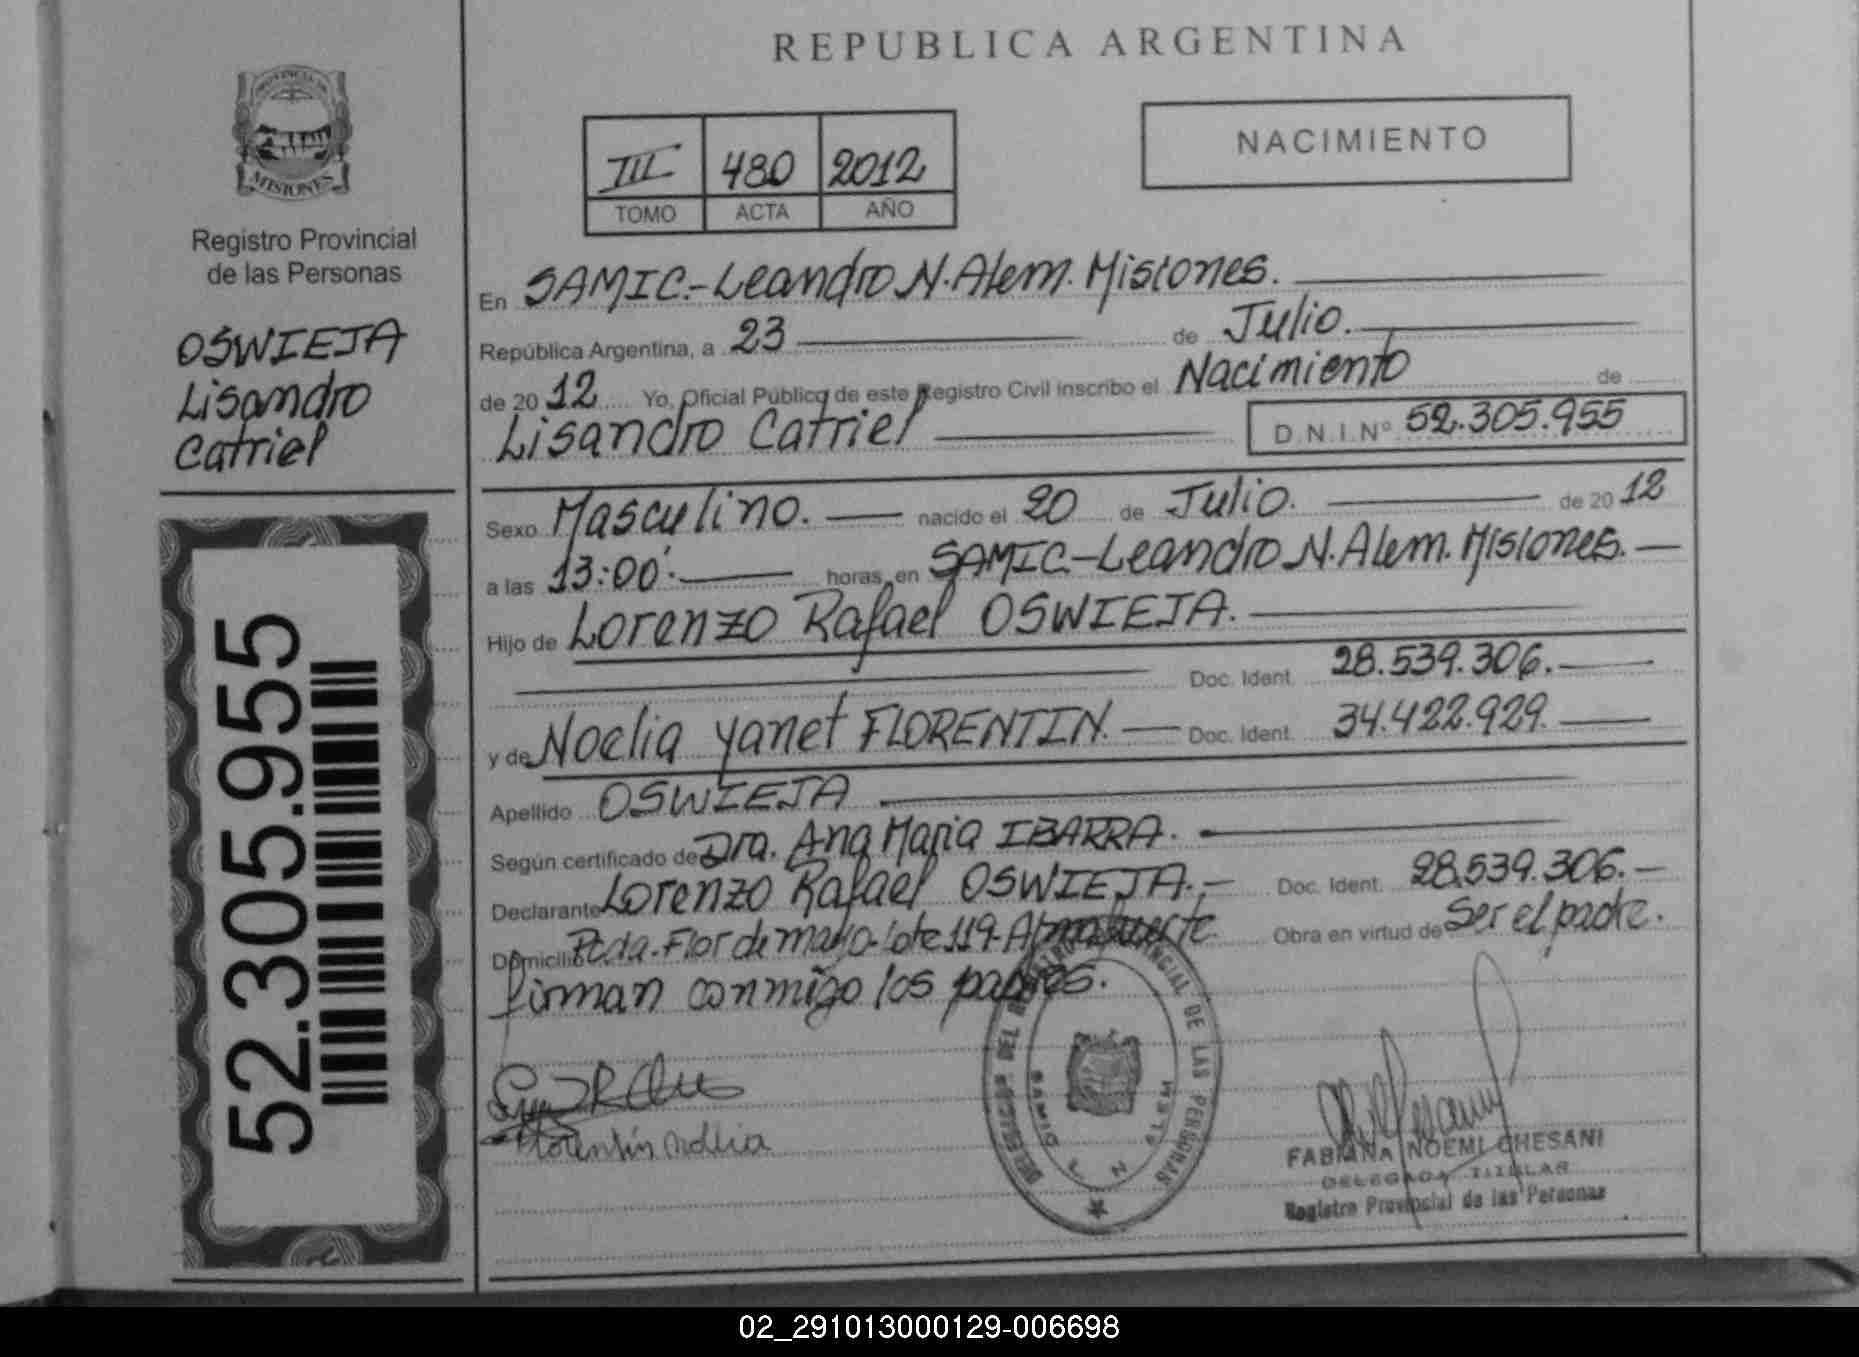 REPUBLICA ARGENTINA
PROVINCIA DE
MISIONES
Registro Provincial
de las Personas
OSWIEJA
Lisandro
Catriel
52.305.955
III 480 2012
TOMO ACTA AÑO
NACIMIENTO
En SAMIC.-Leandro N. Alem. Misiones.
República Argentina, a 23 de Julio.
de 2012 Yo, Oficial Público de este Registro Civil inscribo el Nacimiento de
Lisandro Catriel D.N.I.Nº 52.305.955
Sexo Masculino. nacido el 20 de Julio. de 2012
a las 13:00'. horas, en SAMIC-Leandro N. Alem. Misiones.
Hijo de Lorenzo Rafael OSWIEJA.
Doc. Ident. 28.539.306.
y de Noelia Yanet FLORENTIN. Doc. Ident. 34.422.929.
Apellido OSWIEJA
Según certificado de Dra. Ana Maria IBARRA.
Declarante Lorenzo Rafael OSWIEJA.- Doc. Ident. 28.539.306.-
Domicilio Pcda. Flor de mayo-lote 119-Almafuerte Obra en virtud de Ser el padre.
firman conmigo los padres.
Florentín Noelia
DELEGACION DEL REGISTRO PROVINCIAL DE LAS PERSONAS
SAMIC L N ALEM
FABIANA NOEMI CHESANI
DELEGADA TITULAR
Registro Provincial de las Personas
02_291013000129-006698